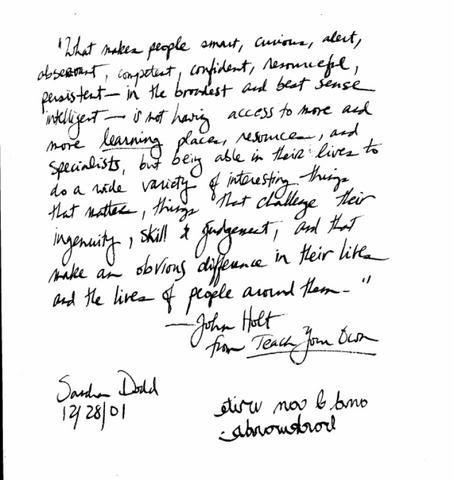 "What makes people smart, curious, alert,
observant, competent, confident, resourceful,
persistent — in the broadest and best sense
intelligent — is not having access to more and
more learning places, resources, and
specialists, but being able in their lives to
do a wide variety of interesting things
that matter, things that challenge their
ingenuity, skill & judgement, and that
make an obvious difference in their lives
and the lives of people around them."
— John Holt
from Teach Your Own
Sandra Dodd
12/28/01
and I can write
backwards.